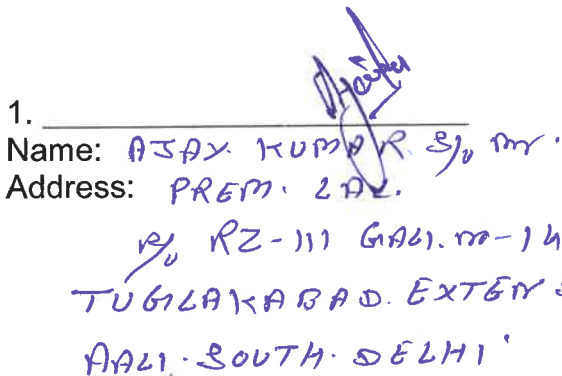 1.
Name: AJAY. KUMAR. S/o mr.
Address: PREM. LAL.
R/o RZ-111 GALI. no-14
TUGLAKABAD. EXTEN
AALI. SOUTH. DELHI